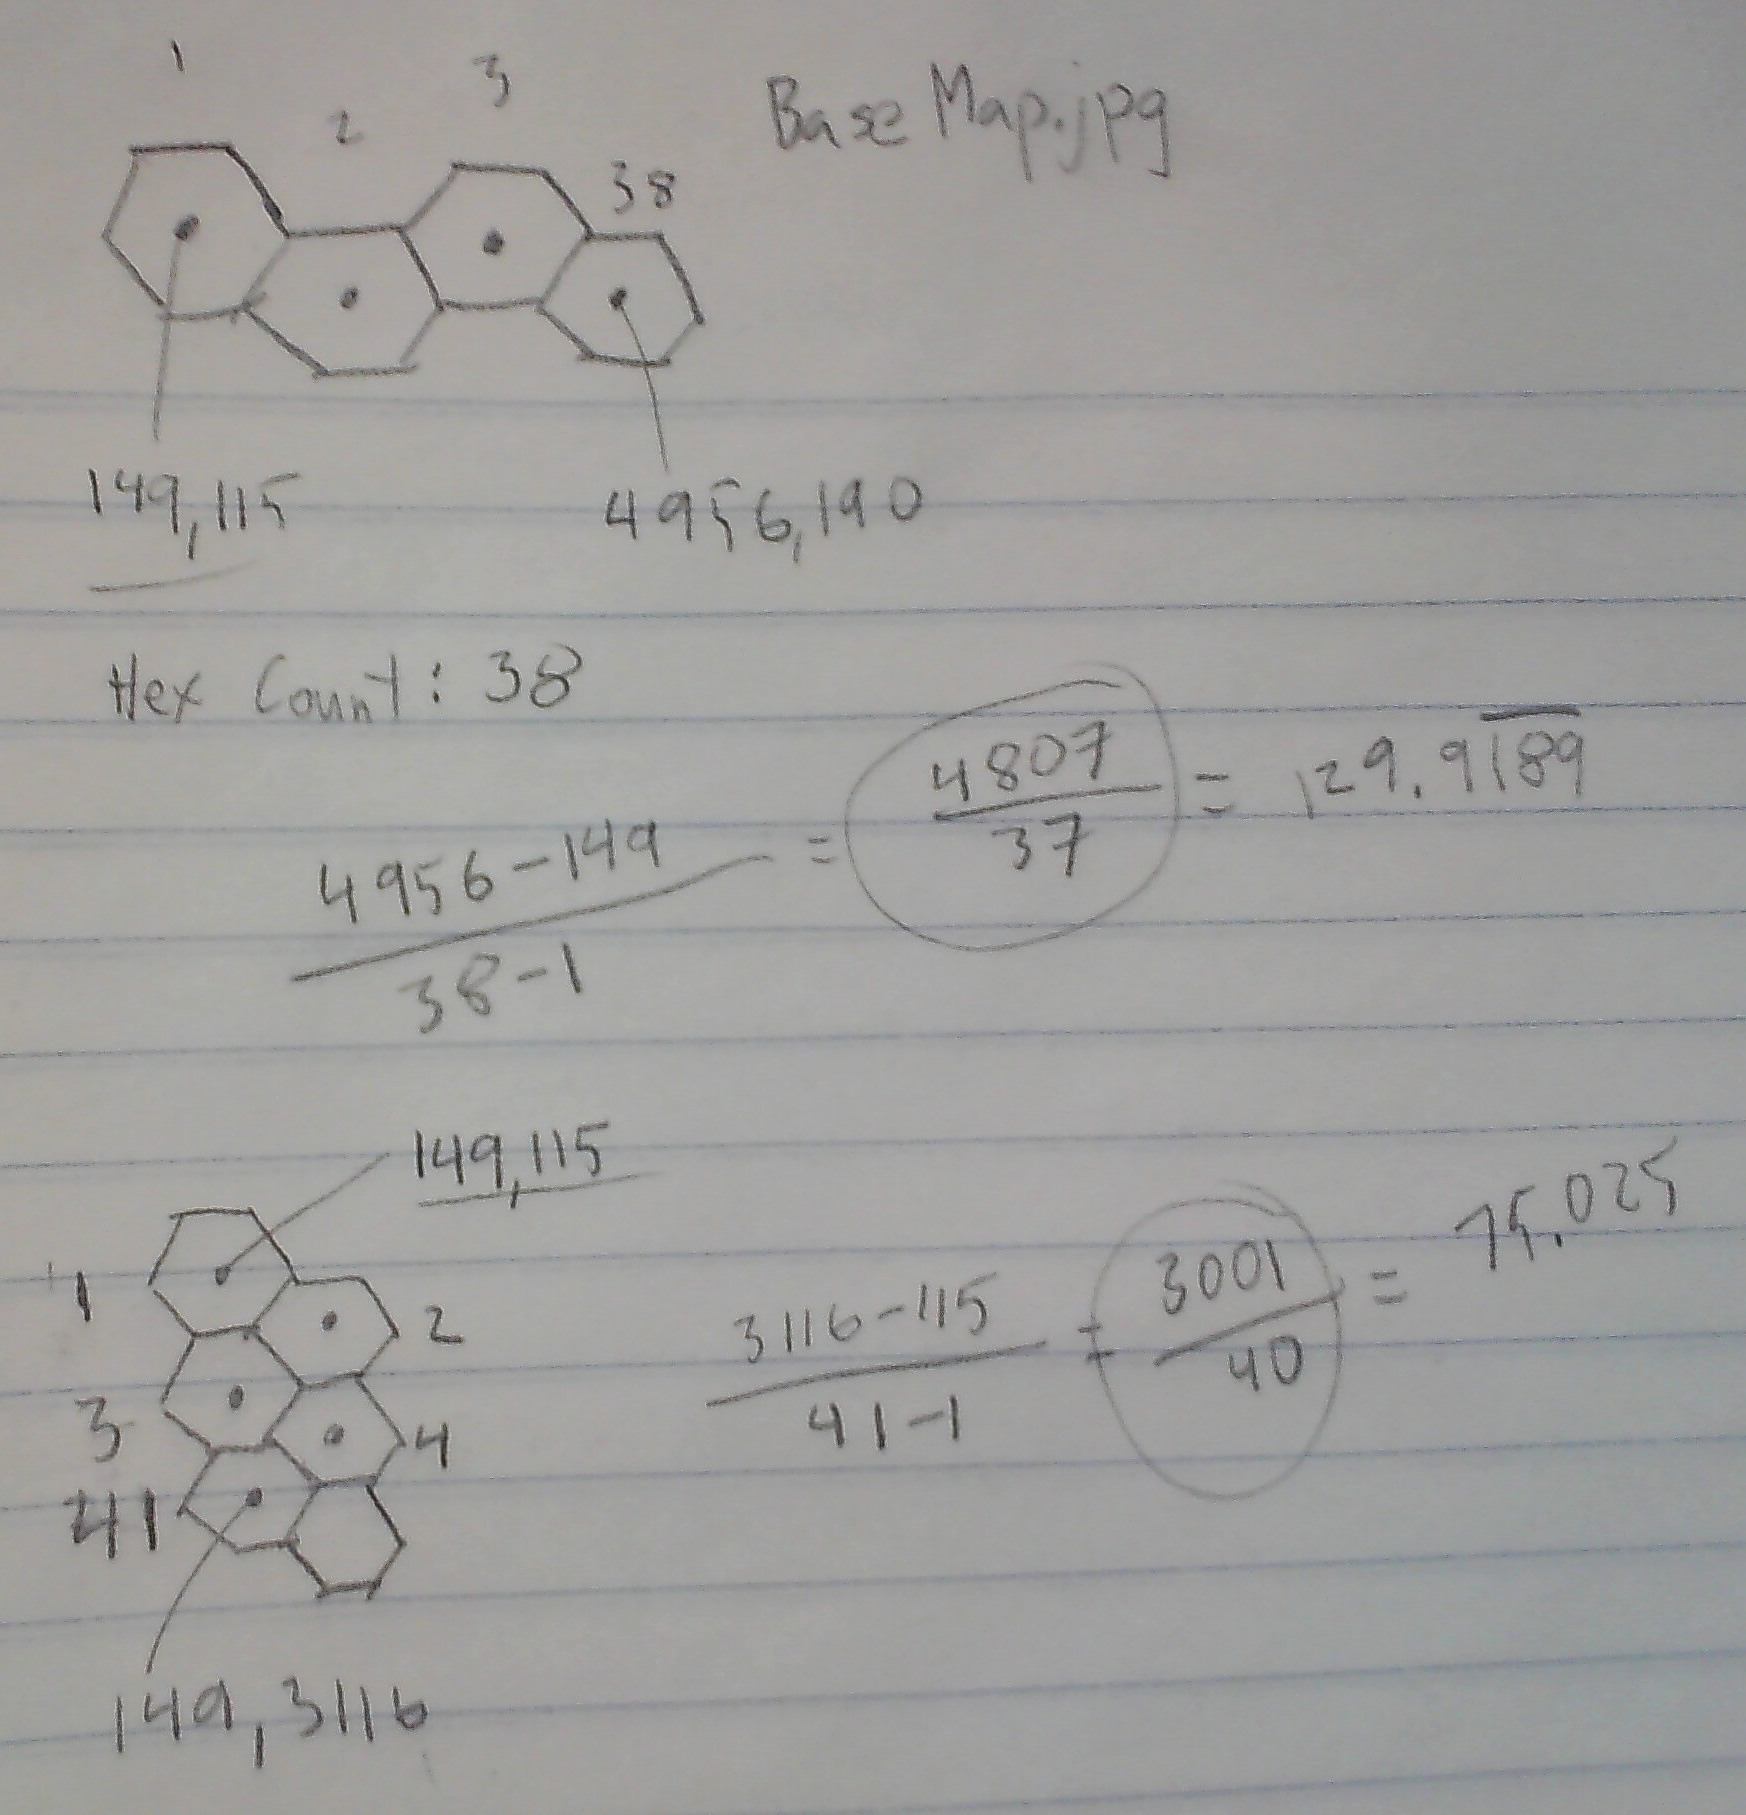 1
2
3
38
Base Map.jpg
149,115
4956,190
Hex Count: 38
4956-149
38-1
=
4807
37
= 129.9189
149,115
1
2
3
4
41
3116-115
41-1
=
3001
40
= 75.025
149,3116